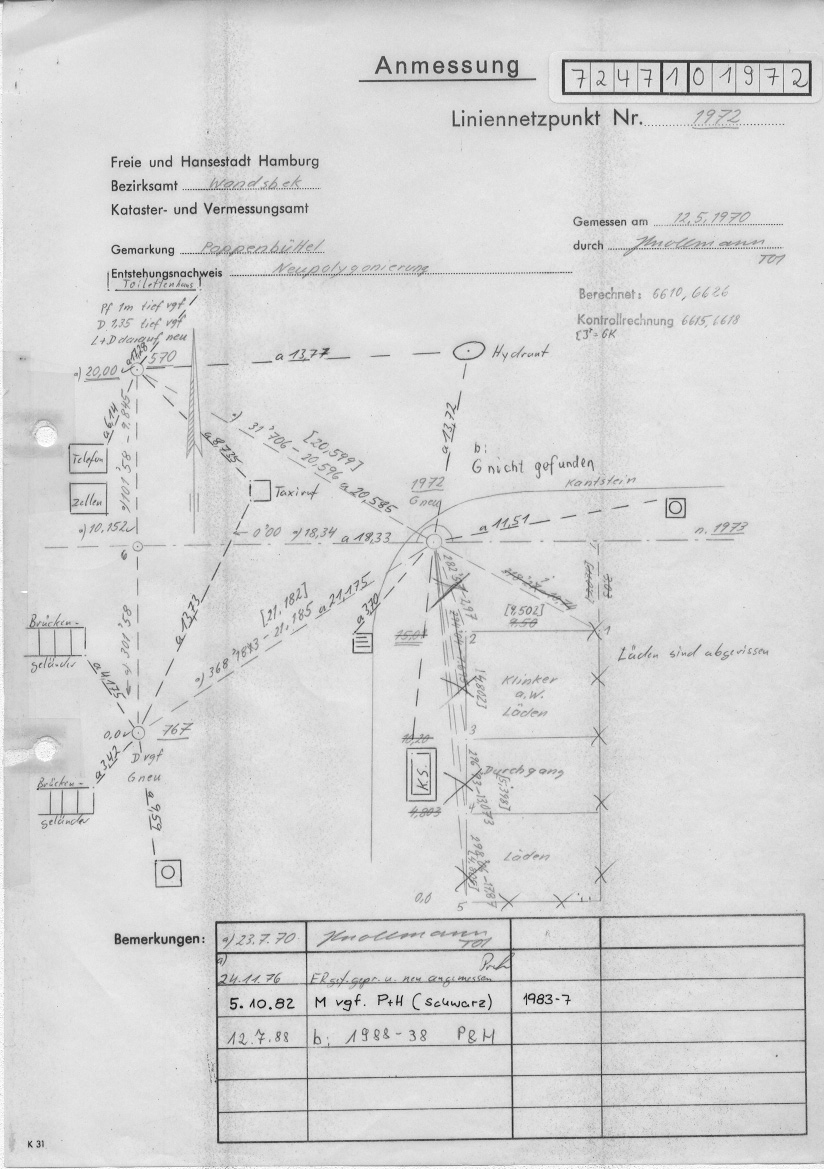 Anmessung
7247101972
Liniennetzpunkt Nr. 1972
Freie und Hansestadt Hamburg
Bezirksamt Wandsbek
Kataster- und Vermessungsamt
Gemessen am 12.5.1970
durch Knollmann
T01
Gemarkung Poppenbüttel
Entstehungsnachweis Neupolygonierung
Toilettenhaus
Berechnet: 6610, 6626
Kontrollrechnung 6615, 6618
Pf 1m tief vgf
D 1,35 tief vgf
L+D darauf neu
a) 20,00
570
a 13,77
Hydrant
a 13,72
a 6,14
a) 31°706 - 20,596
[20,599]
a 20,585
a 8,735
Telefon
Zellen
Taxiruf
b:
G nicht gefunden
1972
G neu
Kantstein
a 11,51
a) 10,152
0°00
a) 18,34
a 18,33
n. 1973
6
[21,182]
a) 368°1883 - 21,185
a 21,175
a 13,73
a 3,70
[9,502]
9,50
1
2
Brücken-
geländer
a 4,175
Läden sind abgerissen
Klinker
a.W.
Läden
0,0
767
a 3,42
D vgf
G neu
3
10,20
K.S.
Durchgang
4,803
4
Brücken-
geländer
a 9,59
Läden
0,0
5
Bemerkungen:
a) 23.7.70 Knollmann
T01
a)
24.11.76
5.10.82 M vgf. P+H (Schwarz) 1983-7
12.7.88 b: 1988-38 P&H
K 31